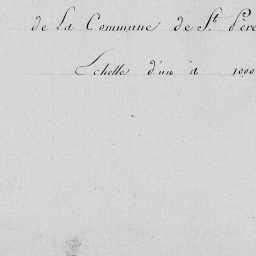 de La Commune de St. Père
Echelle d'un à 1000